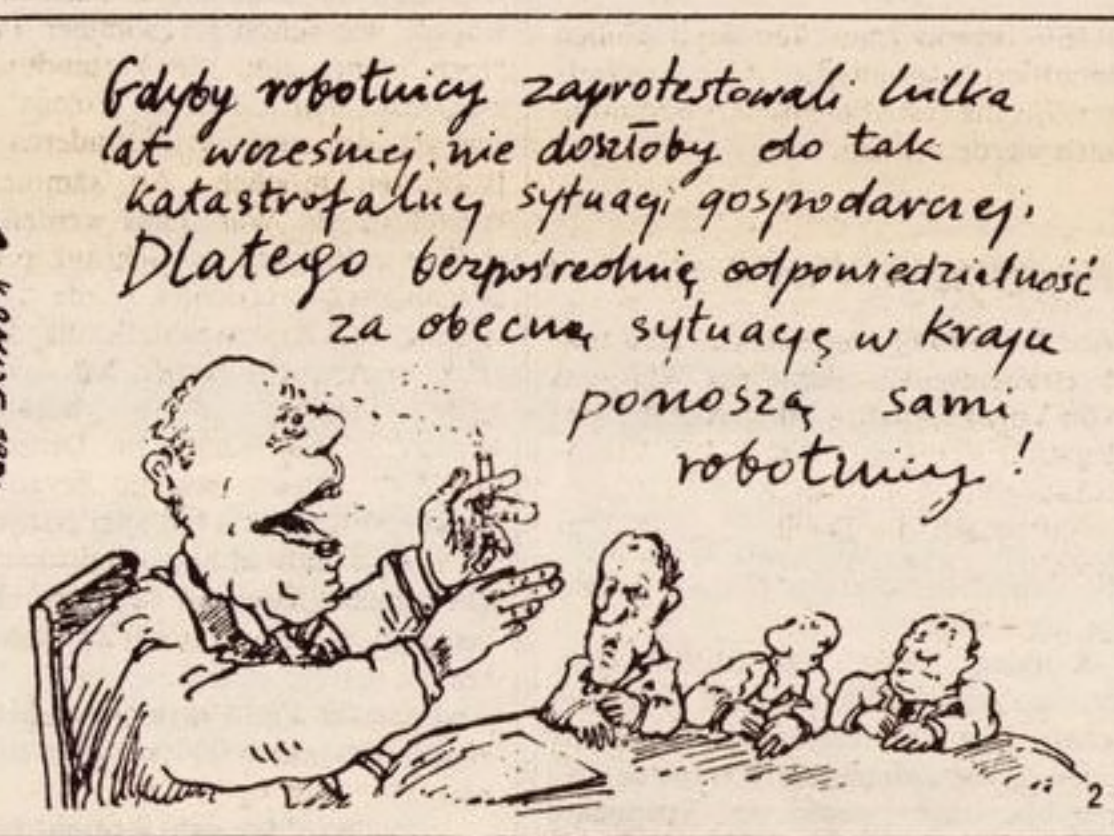 Gdyby robotnicy zaprotestowali kilka
lat wcześniej, nie doszłoby do tak
katastrofalnej sytuacji gospodarczej.
Dlatego bezpośrednią odpowiedzialność
za obecną sytuację w kraju
ponoszą sami
robotnicy!
2